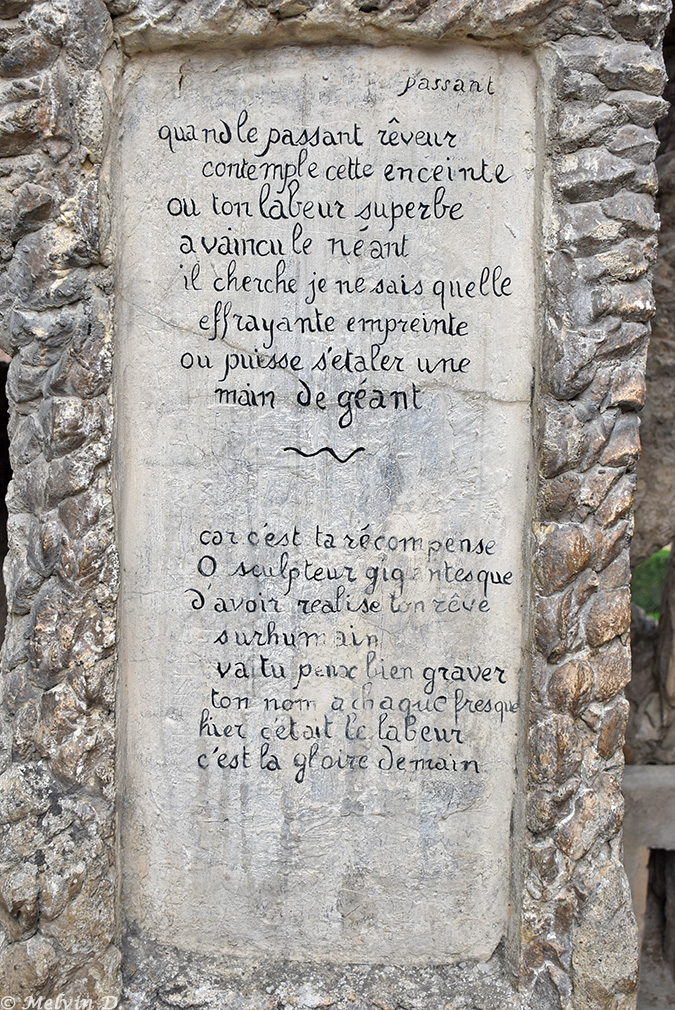 passant
quand le passant rêveur
contemple cette enceinte
ou ton labeur superbe
a vaincu le néant
il cherche je ne sais quelle
effrayante empreinte
ou puisse s'etaler une
main de géant
car c'est ta récompense
O sculpteur gigantesque
d'avoir realise ton rêve
surhumain
va tu peux bien graver
ton nom a chaque fresque
hier c'était le labeur
c'est la gloire demain
© Melvin D.